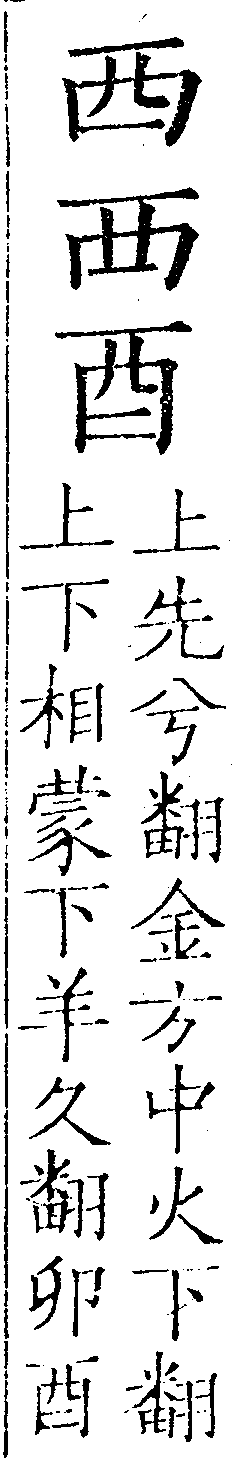 西襾酉
上先兮翻金方中火下翻
上下相蒙下羊久翻卯酉